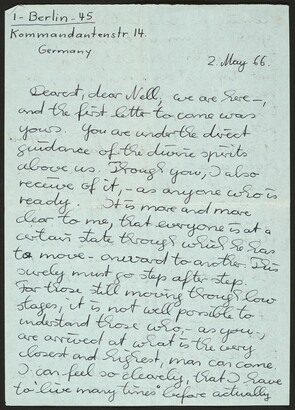 1 - Berlin - 45
Kommandantenstr. 14.
Germany
2. May 66.
Dearest, dear Nell, we are here -,
and the first letter to come was
yours. You are under the direct
guidance of the divine spirits
above us. Through you, I also
receive of it, - as anyone who is
ready. It is more and more
clear to me, that everyone is at a
certain state through which he has
to move - onward to another. This
surely must go step after step.
For those still moving through low
stages, it is not well possible to
understand those who, - as you -,
are arrived at what is the very
closest and highest, man can come.
I can feel so clearly, that I have
to "live many times" before actually